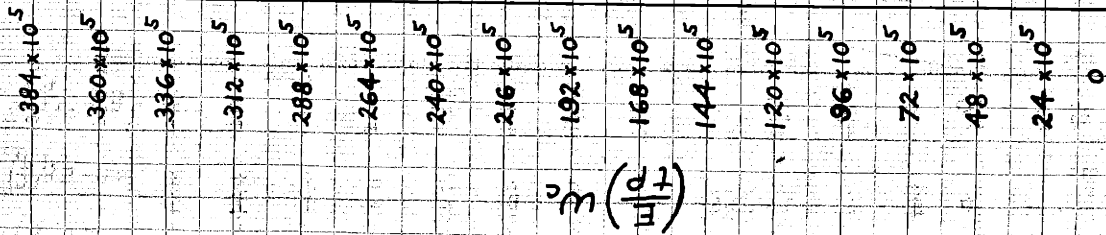 384×10⁵
360×10⁵
336×10⁵
312×10⁵
288×10⁵
264×10⁵
240×10⁵
216×10⁵
192×10⁵
168×10⁵
144×10⁵
120×10⁵
96×10⁵
72×10⁵
48×10⁵
24×10⁵
0
(E/tp) w_c